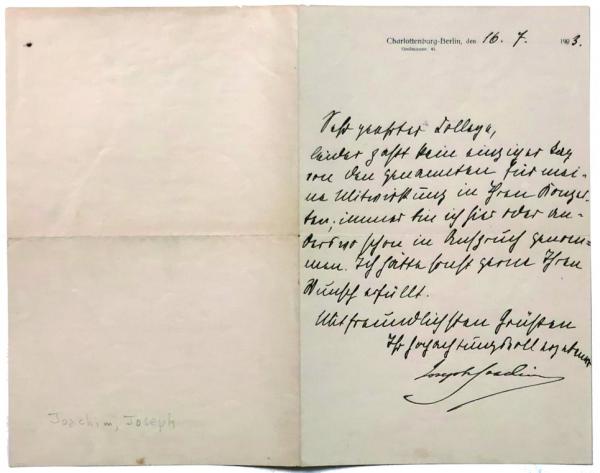 Charlottenburg-Berlin, den 16. 7. 1903.
Sehr geehrter College,
leider paßt kein einziger Tag
von den genannten für mei-
ne Mitwirkung in Ihren Konzer-
ten; immer bin ich hier oder an-
derswo schon in Anspruch genom-
men. Ich hätte sonst gerne Ihren
Wunsch erfüllt.
Mit freundlichsten Grüßen
Ihr hochachtungsvoll ergebener
Joseph Joachim
Joachim, Joseph